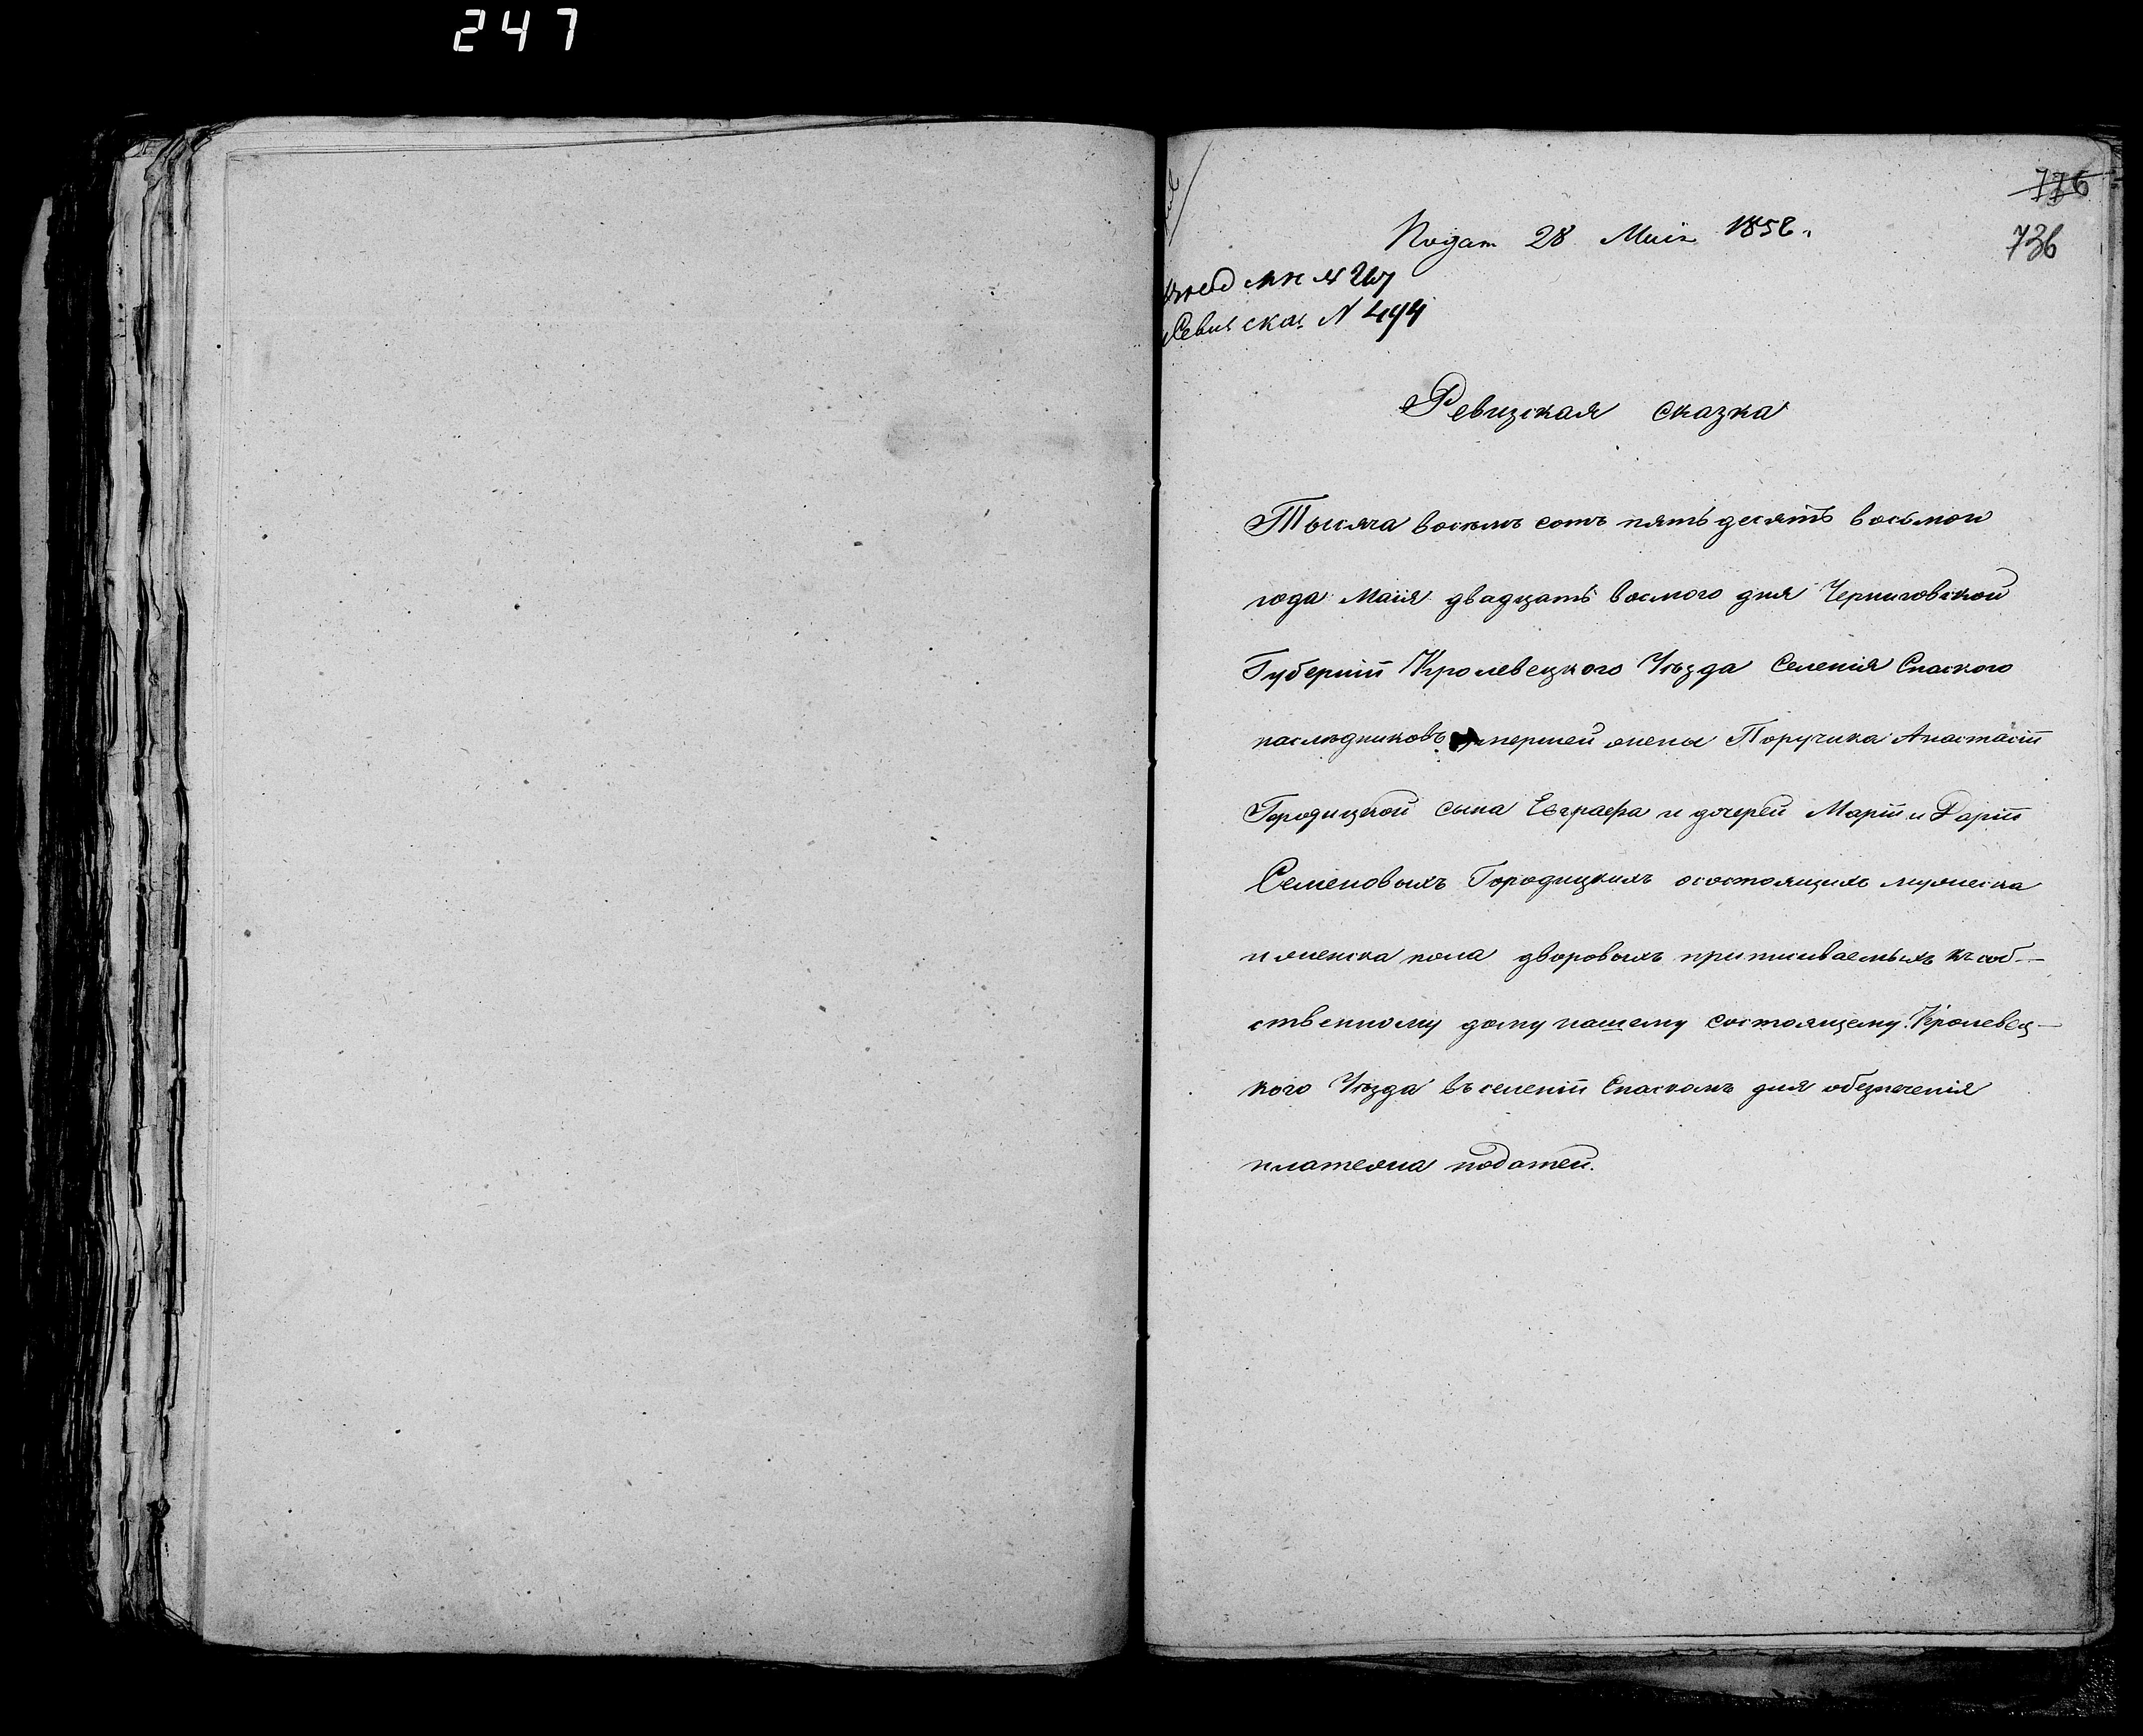 247
776
736
Подат 28 Маия 1858.
N
Ревиз скаѕ N 494
Ревизская сказка
Тысяча восемь сотъ пятьдесятъ восьмои
года Маія двадцать восмого дня Черниговской
Губерніи Кролевецкого Уѣзда Селенія Спаского
наслѣдниковъ умершей жены Поручика Анастасіи
Городицкой сына Евграфа и дочерей Маріи и Даріи
Семеновыхъ Городицкихъ осостоящихъ мужеска
и женска пола дворовыхъ приписываемыхъ къ соб-
ственному дому нашему состоящему Кролевец-
кого Уѣзда въ селеніи Спаскомъ для обезпеченія
платежа податей.